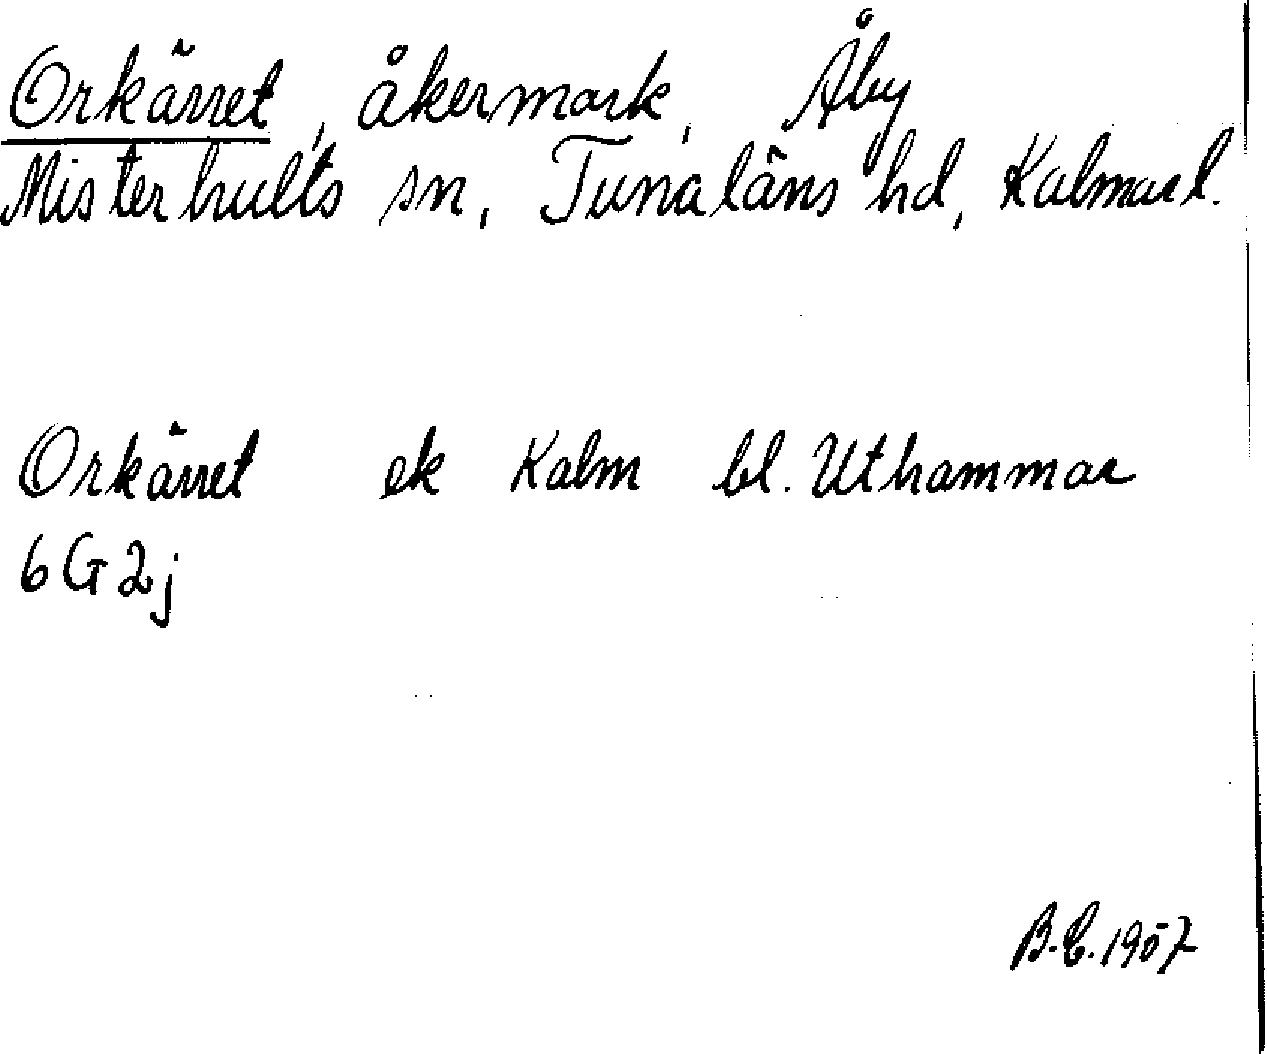 Orkärret, åkermark, Åby
Misterhults sn, Tunaläns hd, Kalmar l.
Orkärret ek Kalm bl. Uthammar
6G2j
B.E. 1957